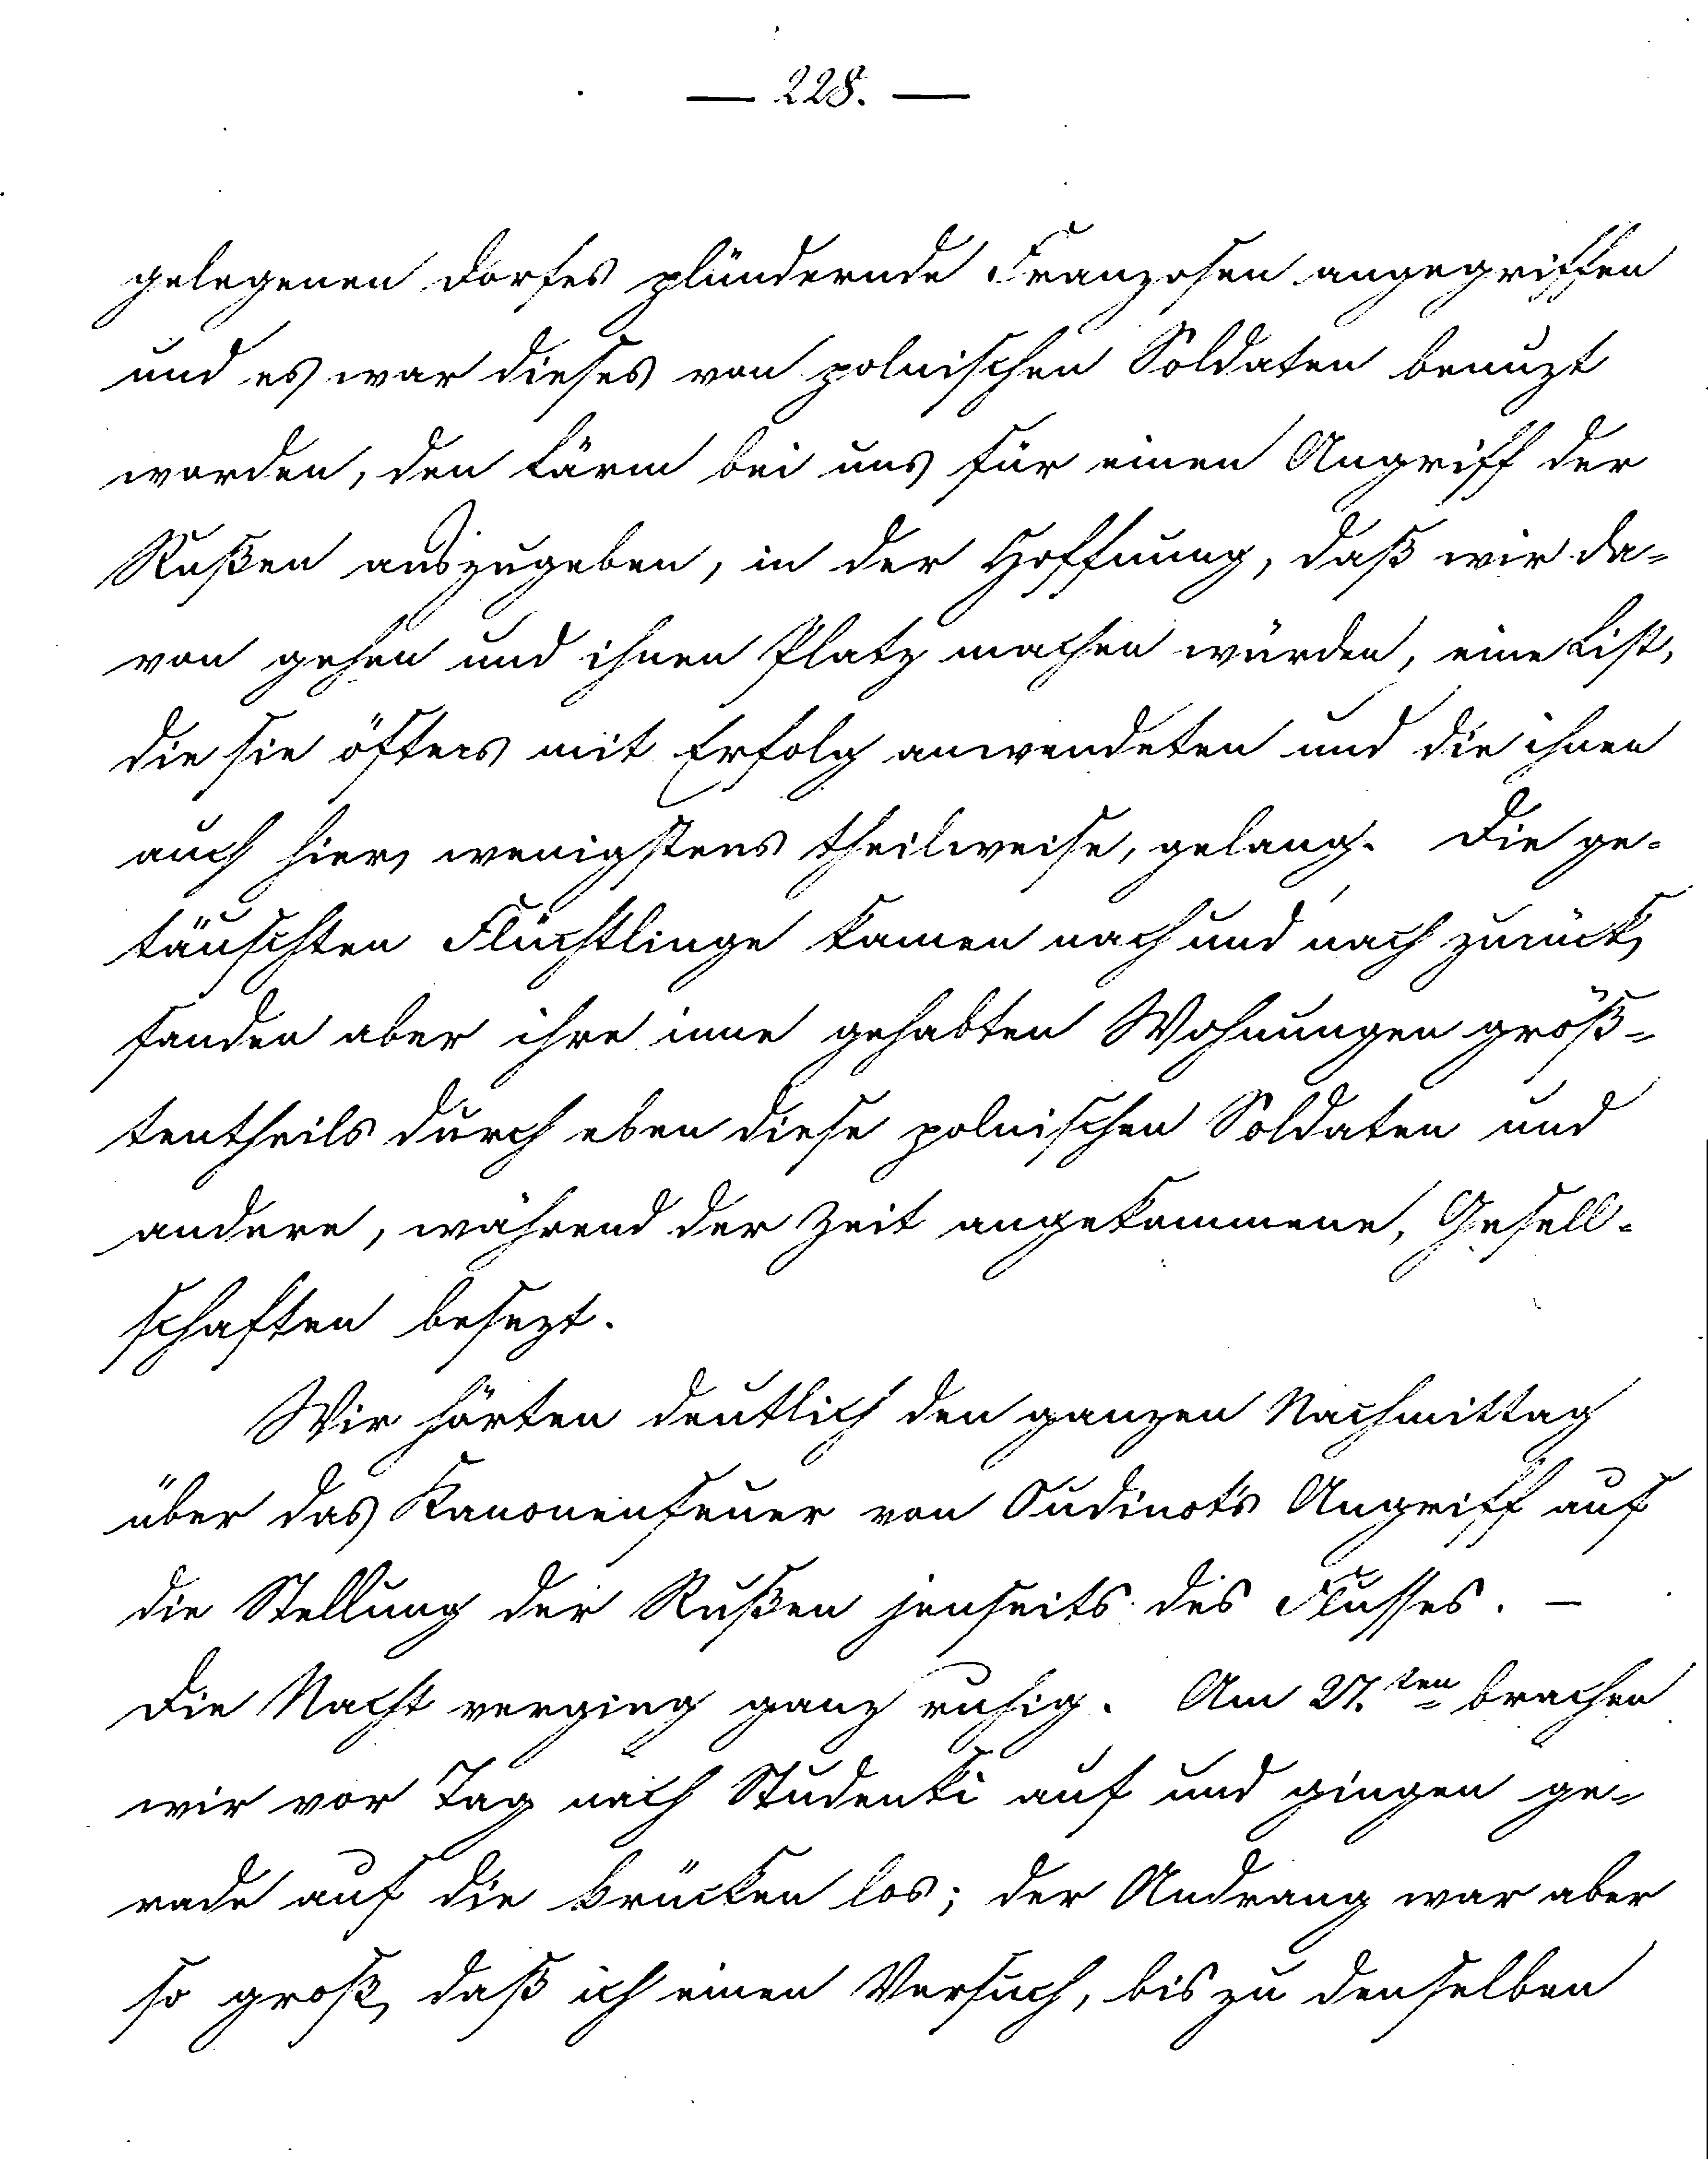 — 228. —
gelegenen Dorfes plündernde Franzosen angegriffen
und es war dieses von polnischen Soldaten benuzt
worden, den Lärm bei uns für einen Angriff der
Rußen auszugeben, in der Hoffnung, daß wir da-
von gehen und ihnen Platz machen würden, eine List,
die sie öfters mit Erfolg anwendeten und die ihnen
auch hier, wenigstens theilweise, gelang. Die ge-
täuschten Flüchtlinge kamen nach und nach zurück,
fanden aber ihre inne gehabten Wohnungen größ-
tentheils durch eben diese polnischen Soldaten und
andere, während der Zeit angekommene, Gesell-
schaften besezt.
Wir hörten deutlich den ganzen Nachmittag
über das Kanonenfeuer von Oudinot's Angriff auf
die Stellung der Rußen jenseits des Flusses. —
Die Nacht verging ganz ruhig. Am 27.ten brachen
wir vor Tag nach Studenki auf und gingen ge-
rade auf die Brücken los; der Andrang war aber
so groß, daß ich einen Versuch, bis zu denselben